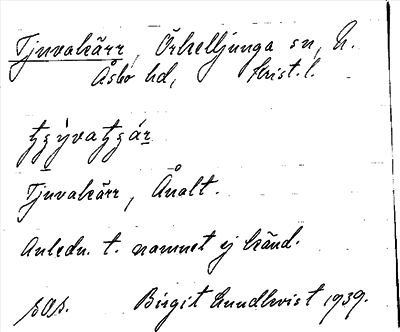 Tjuvakärr, Örkelljunga sn, N.
Åsbo hd, Krist. l.
Tjuvakärr, Åualt.
Anledn. t. namnet ej känd.
sas. Birgit Lundkvist 1939.